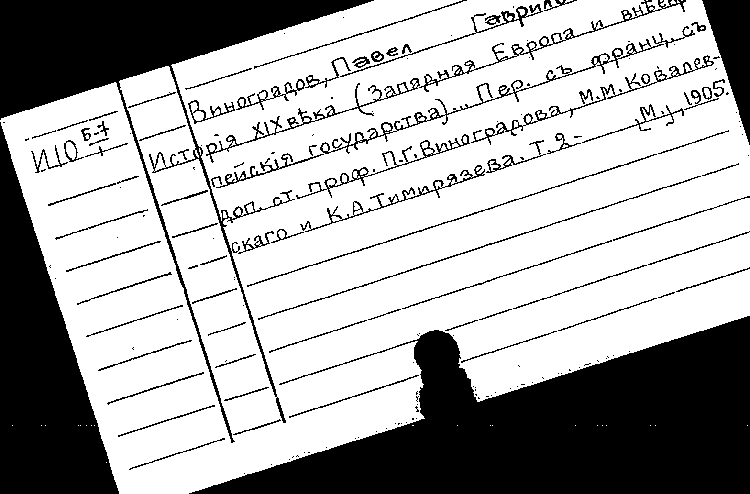 Виноградов, Павел Гаврило
И10 Б-7/1
Исторія XIX вѣка (Западная Европа и внѣевро
пейскія государства)... Пер. съ франц. съ
доп. ст. проф. П.Г. Виноградова, М.М. Ковалев-
скаго и К.А. Тимирязева. Т. 2- [М.], 1905.